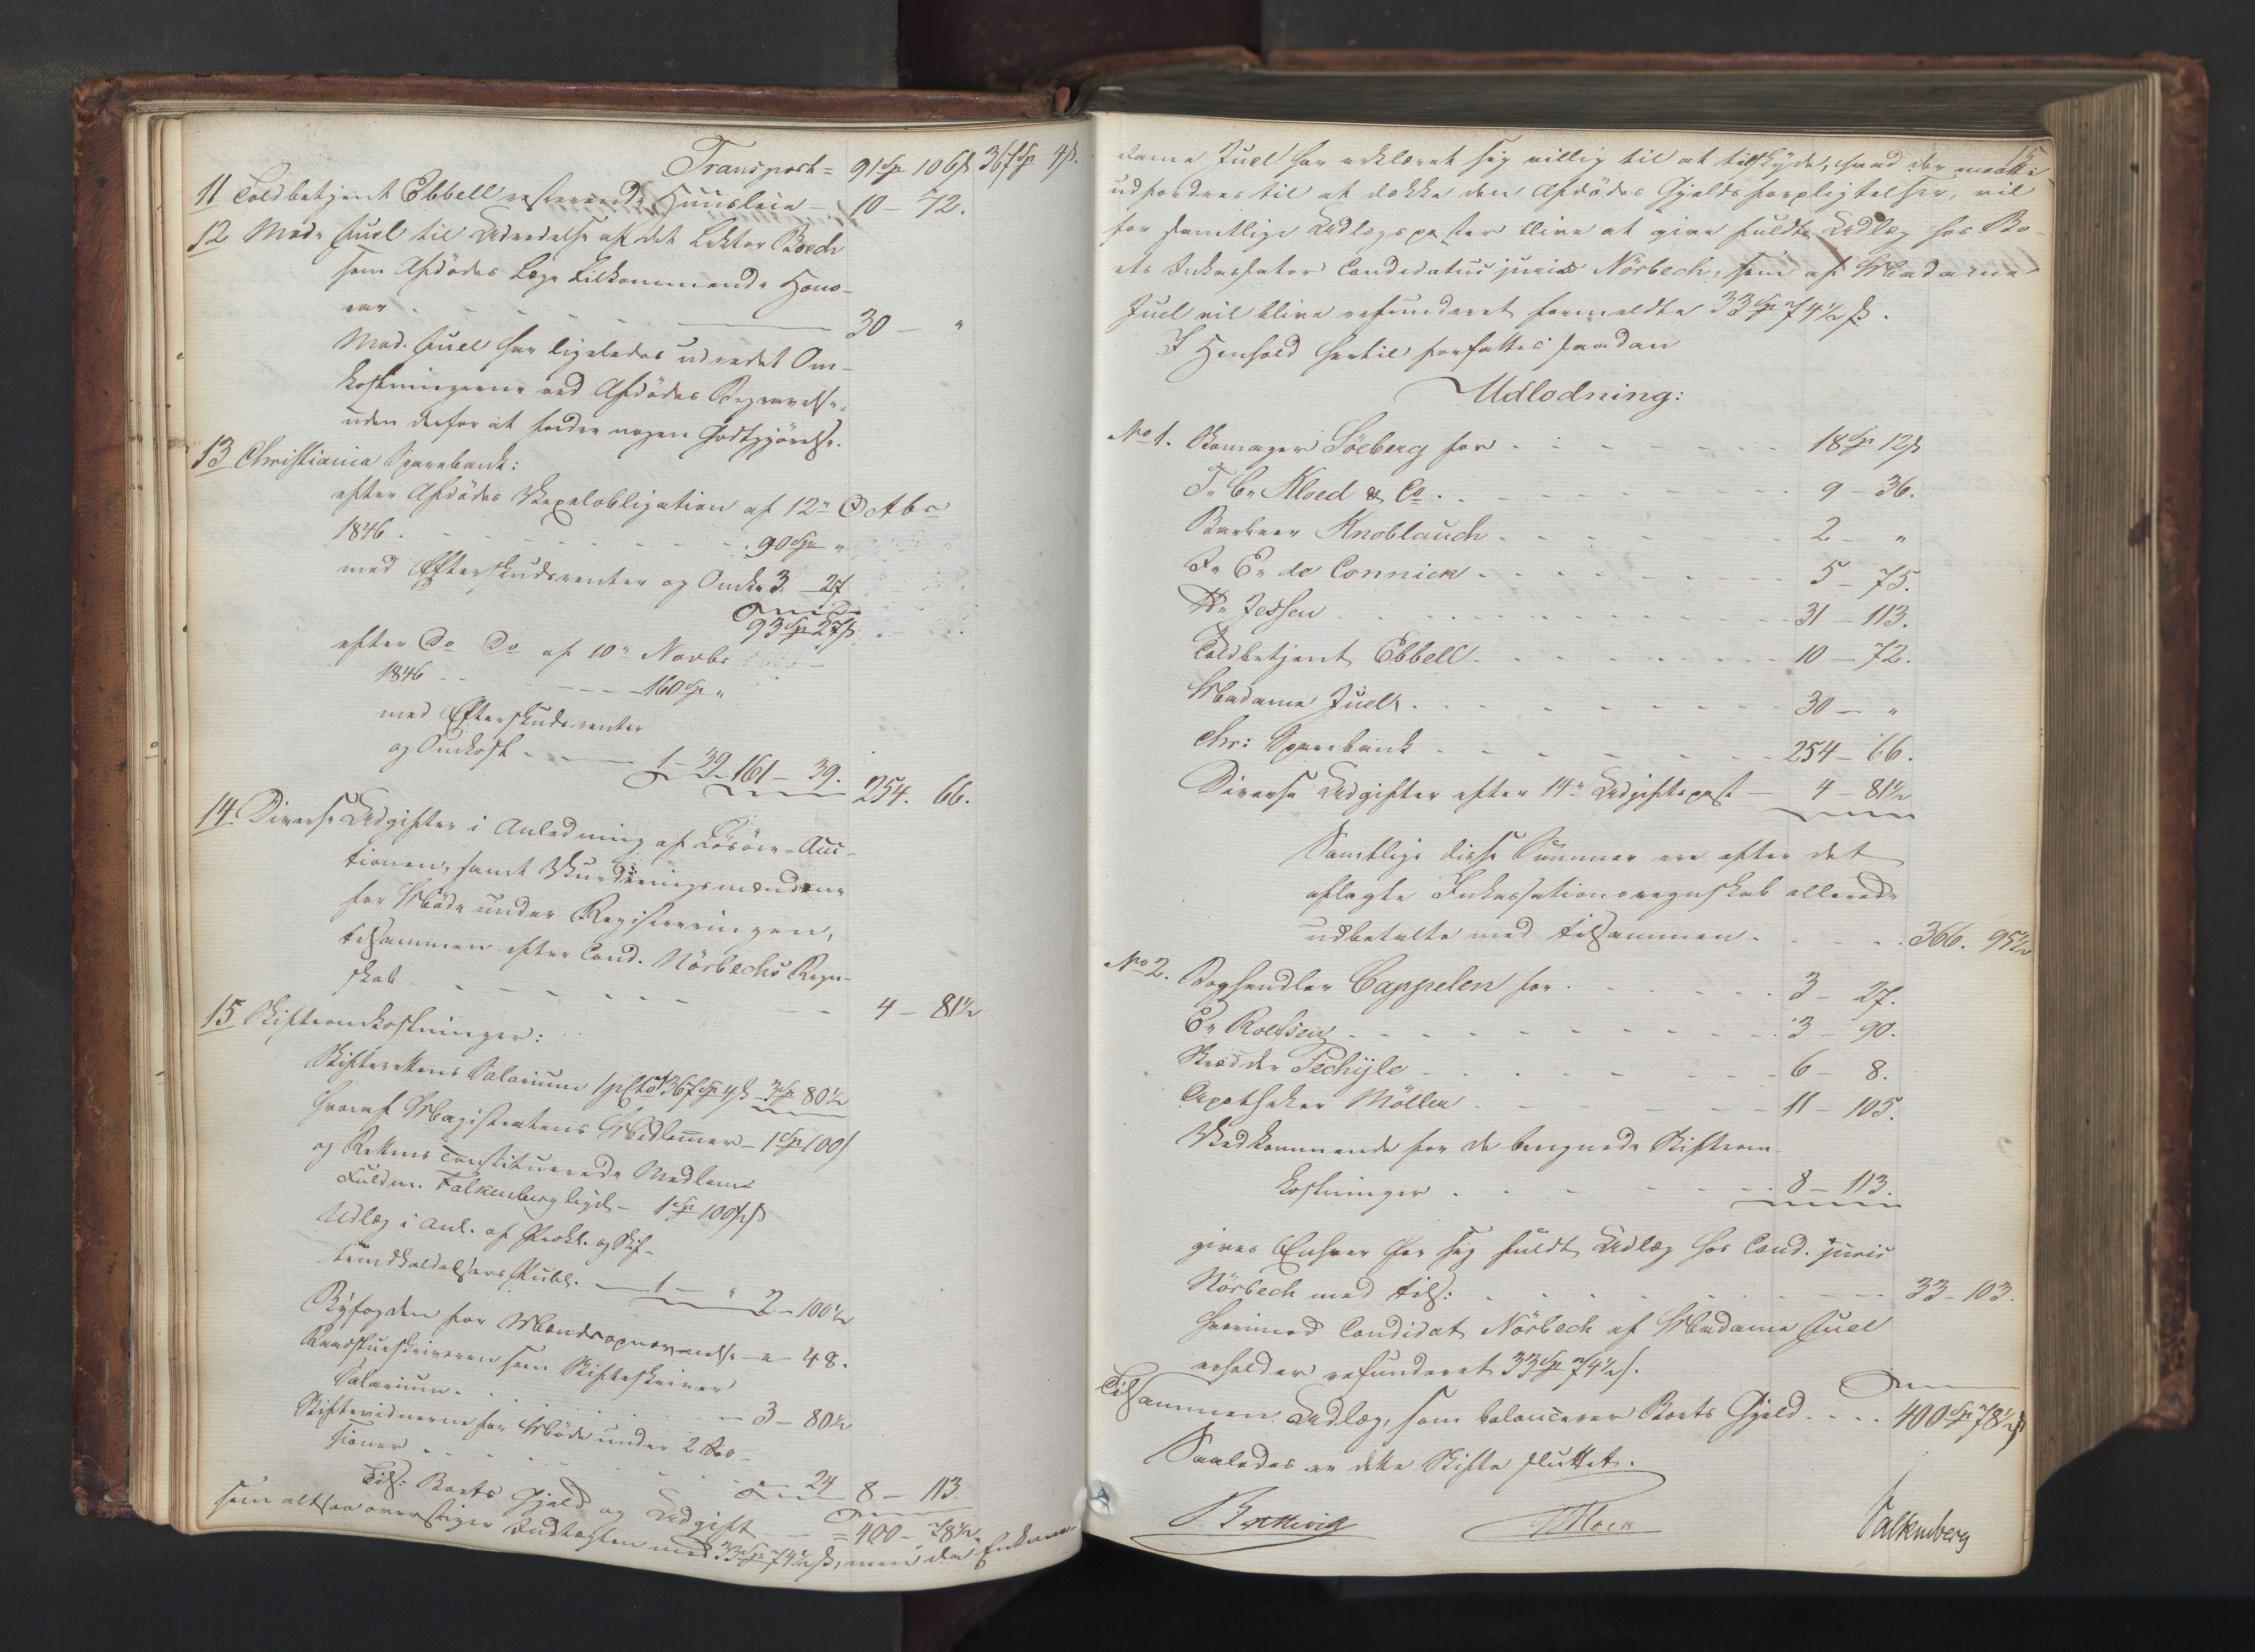 Transport = 91 Sp 106 ß 367 Sp 4 ß.
11 Toldbetjent Ebbell resterende Huusleie – 10 – 72.
12 Mad. Juel til Udredelse af det Lektor Boeck
som Afdødes Læge tilkommende Hono-
rar . 30 – "
Mad. Juel har ligeledes udredet Om-
kostningerne ved Afdødes Begravelse,
uden derfor at fordre nogen Godtgjørelse.
13 Christiania Sparebank:
efter Afdødes Vexelobligation af 12te Octbr
1846 . 90 Sp "
med Efterskudsrenter og Omk. 3 – 27
93 Sp 27 ß
efter Do Do af 10de Novbr
1846 160 Sp "
med Efterskudsrenter
og Omkost. – 1 – 39. 161 – 39. 254. 66.
14. Diverse Udgifter i Anledning af Løsøre-Auc-
tionen, samt Vurderingsmændene
for Møde under Registreringen,
tilsammen efter Cand. Nörbechs Regn-
skab 4 – 81½
15 Skifteomkostninger:
Skifterettens Salarium 1 pCto af 367 Sp 4 ß – 3 Sp 80½
hvoraf Magistratens Medlemmer – 1 Sp 100 ß
og Rettens constituerede Medlem
Fuldm. Falkenberg ligel. – 1 Sp 100½ ß
Udlæg i Anl. af Prokl. og Skif-
teindkaldelsens Publ. – 1 – " 2 – 100½
Byfogden for Mændsopnævnelse – " 48.
Raadstueskriveren som Skifteskriver
Salarium . – 3 – 80½
Skiftevidnerne for Møde under 2 Ses-
sioner . 24 8 – 113.
Tils: Boets Gjeld og Udgift = 400 – 78½.
som altsaa overstiger Indtægten med 33 Sp 74½ ß, men da Enkema-
dame Juel har erklæret sig villig til at tilskyde, hvad der maatte
udfordres til at dække den Afdødes Gjeldsforpligtelser, vil
for samtlige Udlægsposter blive at give fuldt Udlæg hos Bo-
ets Inkassator Candidatus juris Nörbech, som af Madame
Juel vil blive refunderet formeldte 33 Sp 74½ ß.
I Henhold hertil forfattes saadan
Udlodning:
No 1. Skomager Söeberg for . 18 Sp 12 ß
T. C. Kloed & Co . 9 – 36.
Barbeer Knoblauch . 2 – "
F. E. de Connick . 5 – 75.
W. Jessen 31 – 113.
Toldbetjent Ebbell . 10 – 72.
Madame Juel . 30 – "
Chr: Sparebank 254 – 66.
Diverse Udgifter efter 14de Udgiftspost – 4 – 81½
Samtlige disse Summer ere efter det
aflagte Inkassationsregnskab allerede
udbetalte med tilsammen . 366. 95½
No 2. Boghandler Cappelen for . 3 – 27.
E. Roelsen 3 – 90.
Skrædder Pechyle 6 – 8.
Apotheker Möller 11 – 105.
Vedkommende for de beregnede Skifteom-
kostninger . 8 – 113.
gives Enhver for sig fuldt Udlæg hos Cand. juris
Nörbech med tils: 33 – 103.
hvorimod Candidat Nörbech af Madame Juel
erholder refunderet 33 Sp 74½ ß.
Tilsammen Udlæg, som balancerer Boets Gjeld . . . . 400 Sp 78½ ß
Saaledes er dette Skifte sluttet.
Falkenberg